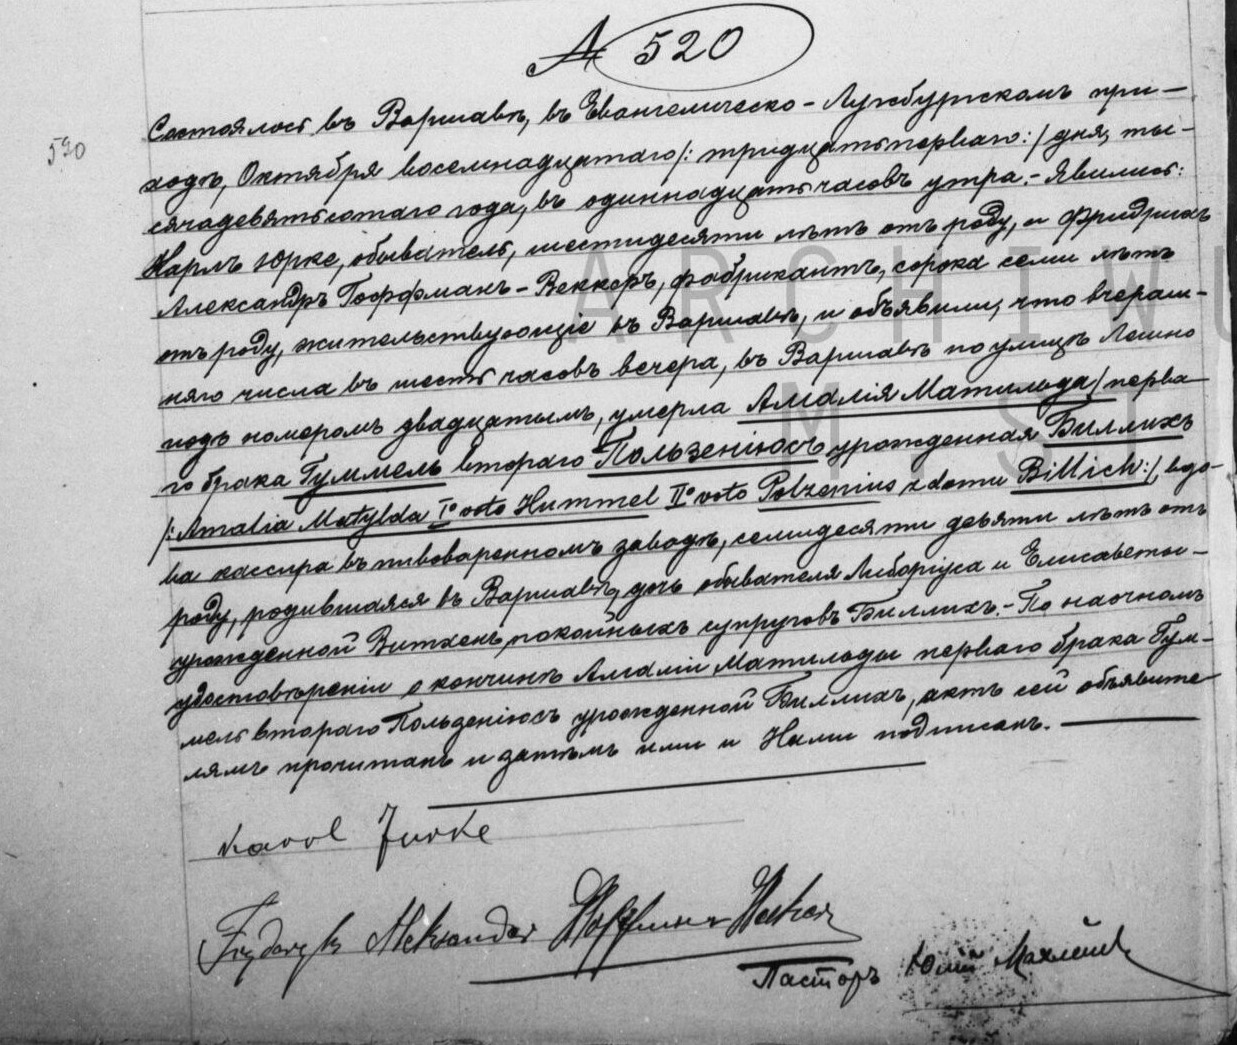 № 520
520
Состоялось въ Варшавѣ, въ Евангелическо-Аугсбургскомъ при-
ходѣ, Октября восемнадцатаго /: тридцать перваго :/ дня, ты-
сяча девятьсотаго года, въ одиннадцать часовъ утра. - Явились:
Карлъ Юрке, обыватель, шестидесяти лѣтъ отъ роду, и Фридрихъ
Александръ Гоффманъ-Веккеръ, фабрикантъ, сорока семи лѣтъ
отъ роду, жительствующіе въ Варшавѣ, и объявили, что вчераш-
няго числа въ шесть часовъ вечера, въ Варшавѣ по улицѣ Лешно
подъ номеромъ двадцатымъ, умерла Амалія Матильда / перва-
го брака Гуммель втораго Польценіюсъ урожденная Биллихъ
/: Amalia Matylda I° voto Hummel II° voto Polzenius z domu Billich :/, вдо-
ва кассира въ пивоваренномъ заводѣ, семидесяти девяти лѣтъ отъ
роду, родившаяся въ Варшавѣ, дочь обывателя Либоріуса и Елисаветы -
урожденной Витхенъ, покойныхъ супруговъ Биллихъ. - По наочномъ
удостовѣреніи о кончинѣ Амаліи Матильды перваго брака Гум-
мель втораго Польценіюсъ урожденной Биллихъ, актъ сей объявите-
лямъ прочитанъ и затѣмъ ими и Нами подписанъ.
Karol Jurke
Fryderyk Aleksander Hoffmann
Пасторъ Юлій
ARCHIWU
M ST